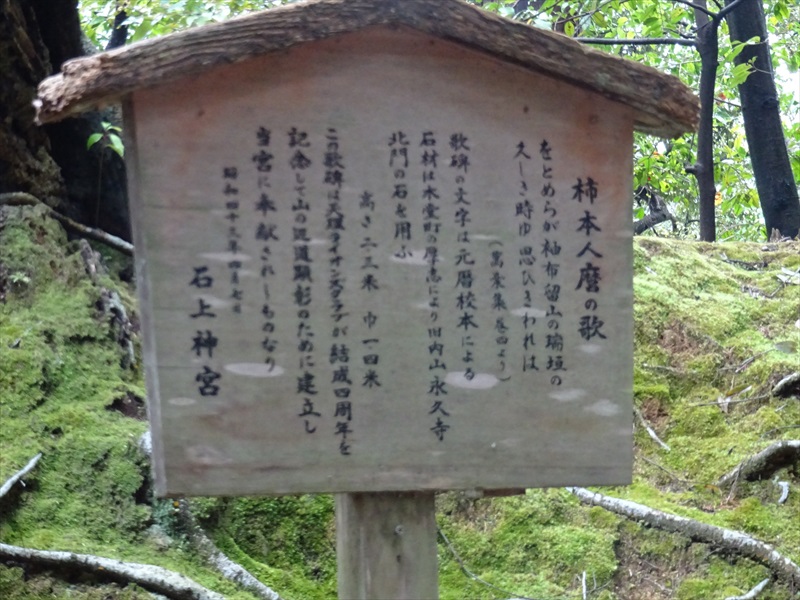 柿本人麿の歌
をとめらが袖布留山の瑞垣の
久しき時ゆ思ひきわれは
(萬葉集 巻四より)
歌碑の文字は元暦校本による
石材は木堂町の厚志により旧内山永久寺
北門の石を用ふ
高さ二三米 巾一四米
この歌碑は天理ライオンズクラブが結成四周年を
記念して山の辺道顕彰のために建立し
当宮に奉献されしものなり
昭和四十三年四月七日
石上神宮